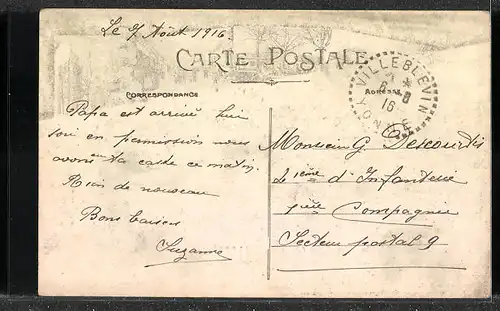 Le 7 Août 1916
CARTE POSTALE
CORRESPONDANCE
ADRESSE
VILLEBLEVIN
YONNE
6 8
16
Papa est arrivé hier
soir en permission nous
avons eu ta carte ce matin.
Rien de nouveau
Bons baisers
Suzanne
Monsieur G. Descourtis
Infanterie
Compagnie
Secteur postal 9